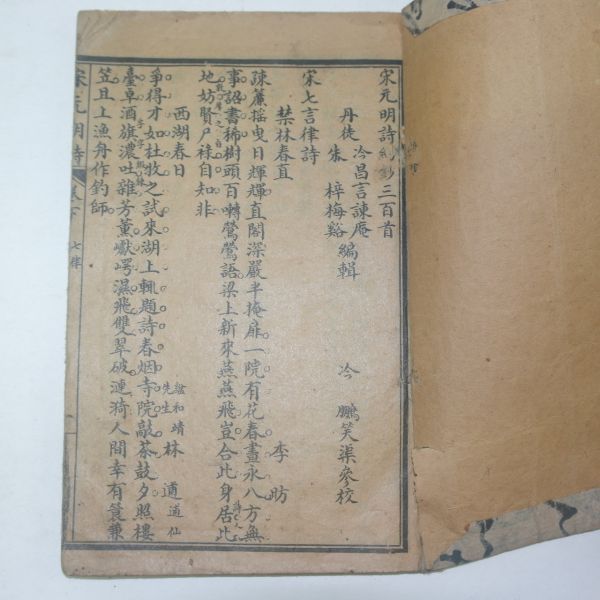 宋元明詩約鈔三百首
丹徒 冷昌言諫庵 朱梓梅谿 編輯 冷鵬笑渠參校
宋七言律詩
禁林春直 李昉
疎簾搖曳日輝輝直閣深嚴半掩扉一院有花春晝永八方無
事詔書稀樹頭百囀鶯鶯語梁上新來燕燕飛豈合此身居此
地妨賢尸祿自知非
西湖春日 諡和靖先生 林逋 逋仙
爭得才如杜牧之試來湖上輒題詩春烟寺院敲茶鼓夕照樓
臺卓酒旗濃吐雜芳薰巘崿濕飛雙翠破漣漪人間幸有簑兼
笠且上漁舟作釣師
宋元明詩 卷下 七律